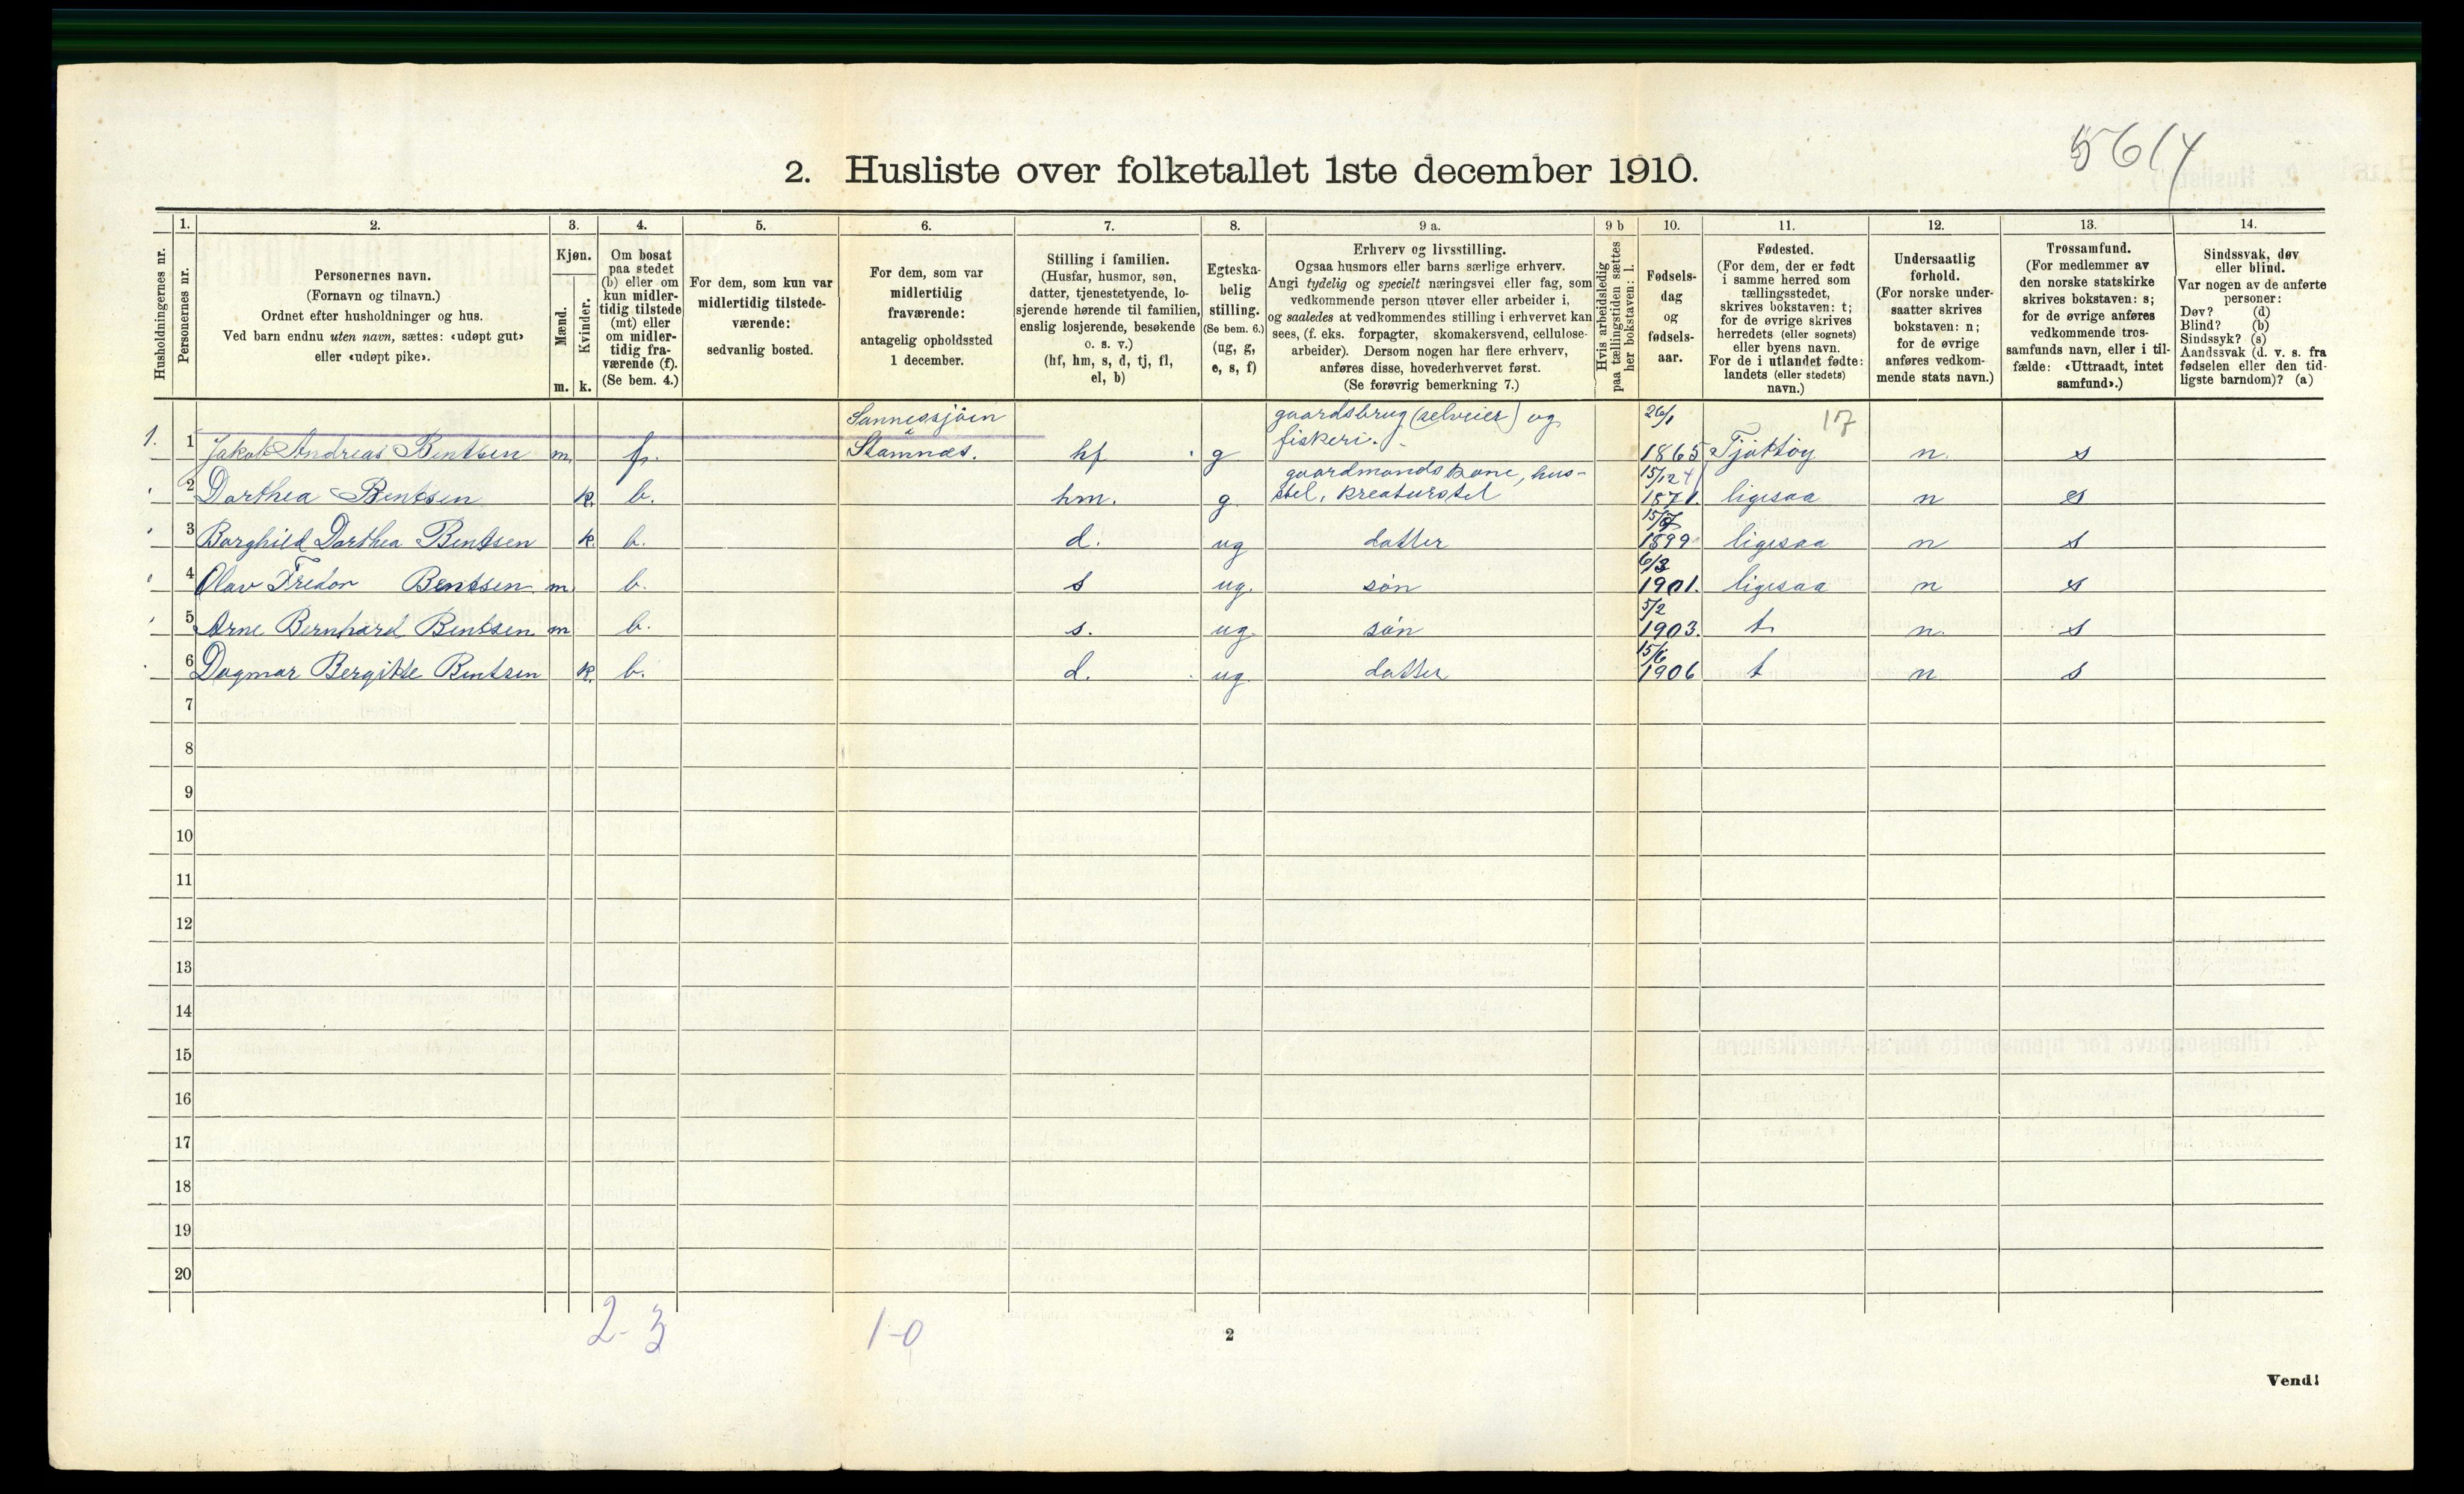 56(4
2. Husliste over folketallet 1ste december 1910.
1. 2. 3. 4. 5. 6. 7. 8. 9 a. 9 b 10. 11. 12. 13. 14.
Husholdningernes nr.
Personernes nr.
Personernes navn.
(Fornavn og tilnavn.)
Ordnet efter husholdninger og hus.
Ved barn endnu uten navn, sættes: «udøpt gut»
eller «udøpt pike».
Kjøn.
Mænd.
Kvinder.
m. k.
Om bosat
paa stedet
(b) eller om
kun midler-
tidig tilstede
(mt) eller
om midler-
tidig fra-
værende (f).
(Se bem. 4.)
For dem, som kun var
midlertidig tilstede-
værende:
sedvanlig bosted.
For dem, som var
midlertidig
fraværende:
antagelig opholdssted
1 december.
Stilling i familien.
(Husfar, husmor, søn,
datter, tjenestetyende, lo-
sjerende hørende til familien,
enslig losjerende, besøkende
o. s. v.)
(hf, hm, s, d, tj, fl,
el, b)
Egteska-
belig
stilling.
(Se bem. 6.)
(ug, g,
e, s, f)
Erhverv og livsstilling.
Ogsaa husmors eller barns særlige erhverv.
Angi tydelig og specielt næringsvei eller fag, som
vedkommende person utøver eller arbeider i,
og saaledes at vedkommendes stilling i erhvervet kan
sees, (f. eks. forpagter, skomakersvend, cellulose-
arbeider). Dersom nogen har flere erhverv,
anføres disse, hovederhvervet først.
(Se forøvrig bemerkning 7.)
Hvis arbeidsledig
paa tællingstiden sættes
her bokstaven: l.
Fødsels-
dag
og
fødsels-
aar.
Fødested.
(For dem, der er født
i samme herred som
tællingsstedet,
skrives bokstaven: t;
for de øvrige skrives
herredets (eller sognets)
eller byens navn.
For de i utlandet fødte:
landets (eller stedets)
navn.)
Undersaatlig
forhold.
(For norske under-
saatter skrives
bokstaven: n;
for de øvrige
anføres vedkom-
mende stats navn.)
Trossamfund.
(For medlemmer av
den norske statskirke
skrives bokstaven: s;
for de øvrige anføres
vedkommende tros-
samfunds navn, eller i til-
fælde: «Uttraadt, intet
samfund».)
Sindssvak, døv
eller blind.
Var nogen av de anførte
personer:
Døv? (d)
Blind? (b)
Sindssyk? (s)
Aandssvak (d. v. s. fra
fødselen eller den tid-
ligste barndom)? (a)
Sannessjöen gaardsbrug (selveier) og 26/1 17
1. 1 Jakob Andreas Bentsen m. f. Stamnes. hf g fiskeri. 1865 Tjøtöy n. s
gaardmandskone, hus- 15/12
2 Dorthea Bentsen k. b. hm. g. stel, kreaturstel 1871. ligesaa n s
15/7
3 Borghild Dorthea Bentsen k. b. d. ug datter 1899 ligesaa n s
6/3
4 Olav Fredor Bentsen m. b. s ug. søn 1901. ligesaa n s
5/2
5 Arne Bernhard Bentsen m b. s. ug. søn 1903. t. n. s
15/6
6 Dagmar Bergitte Bentsen k. b. d. ug. datter 1906 t n s
7
8
9
10
11
12
13
14
15
16
17
18
19
20
2-3 1-0
2
Vend!